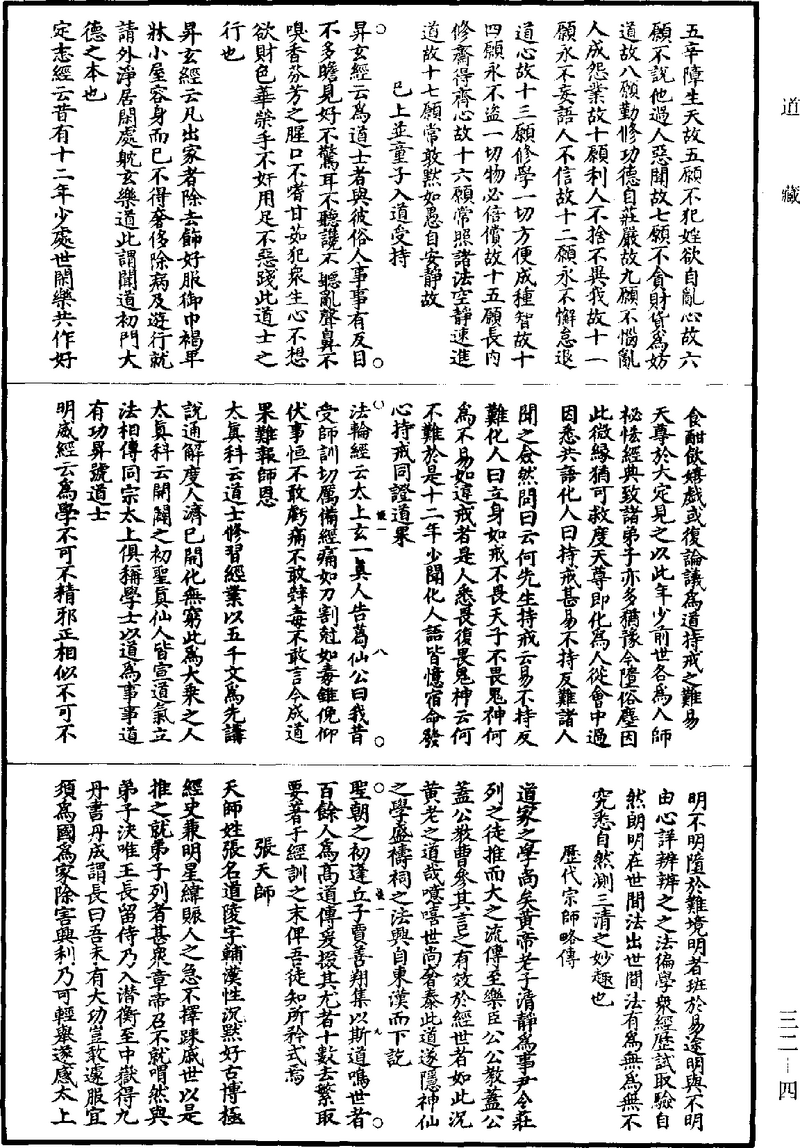 道藏
三二—四
五辛障生天故五願不犯婬欲自亂心故六
願不說他過人惡聞故七願不貪財貨為妨
道故八願勤修功德自莊嚴故九願不惱亂
人成怨業故十願利人不捨不與我故十一
願永不妄語人不信故十二願永不懈怠退
道心故十三願修學一切方便成種智故十
四願永不盜一切物必倍償故十五願長內
修齋得齊心故十六願常照諸法空靜速進
道故十七願常敢默如愚自安靜故
已上並童子入道受持
昇玄經云為道士者與彼俗人事事有反目
不多瞻見好不驚耳不聽讒不聽亂聲鼻不
嗅香芬芳之腥口不嗜甘茹犯衆生心不想
欲財色華榮手不奸用足不惡踐此道士之
行也
昇玄經云凡出家者除去飾好服御巾褐單
牀小屋容身而已不得奢侈除病及遊行就
請外淨居閑處躭玄樂道此謂聞道初門大
德之本也
定志經云昔有十二年少處世閑樂共作好
食酣飲嬉戲或復論議為道持戒之難易
天尊於大定見之以此年少前世各為人師
秘恡經典致諸弟子亦多猶豫令墮俗塵因
此微緣猶可救度天尊即化為人從會中過
因悉共語化人曰持戒甚易不持反難諸人
聞之僉然問曰云何先生持戒云易不持反
難化人曰立身如戒不畏天子不畏鬼神何
為不易如違戒者是人悉畏復畏鬼神云何
不難於是十二年少聞化人語皆憶宿命發
心持戒同證道果
法輪經云太上玄一真人告葛仙公曰我昔
受師訓切厲備經痛如刀割尅如毒錐俛仰
伏事恒不敢虧痛不敢辤毒不敢言今成道
果難報師恩
太真科云道士修習經業以五千文為先講
說通解度人濟己開化無窮此為大乘之人
太真科云開闢之初聖真仙人皆宣道氣立
法相傳同宗太上俱稱學士以道為事事道
有功昇號道士
明威經云為學不可不精邪正相似不可不
明不明墮於難境明者班於易途明與不明
由心詳辨辨之之法徧學衆經歷試取驗自
然朗明在世間法出世間法有為無為無不
究悉自然測三清之妙趣也
歷代宗師略傳
道家之學尚矣黃帝老子清靜為事尹令莊
列之徒推而大之流傳至樂臣公公教蓋公
蓋公教曹參其言之有效於經世者如此況
黃老之道哉噫嘻世尚奢泰此道遂隱神仙
之學盛禱祠之法興自東漢而下訖
聖朝之初逢丘子賈善翔集以斯道鳴世者
百餘人為高道傳爰掇其尤者十數去繁取
要著于經訓之末俾吾徒知所矜式焉
張天師
天師姓張名道陵字輔漢性沉默好古博極
經史兼明星緯賑人之急不擇踈戚世以是
推之就弟子列者甚衆章帝召不就喟然與
弟子決唯王長留侍乃入潛衡至中嶽得九
丹書丹成謂長曰吾未有大功豈敢遽服宜
須為國為家除害興利乃可輕舉遂感太上